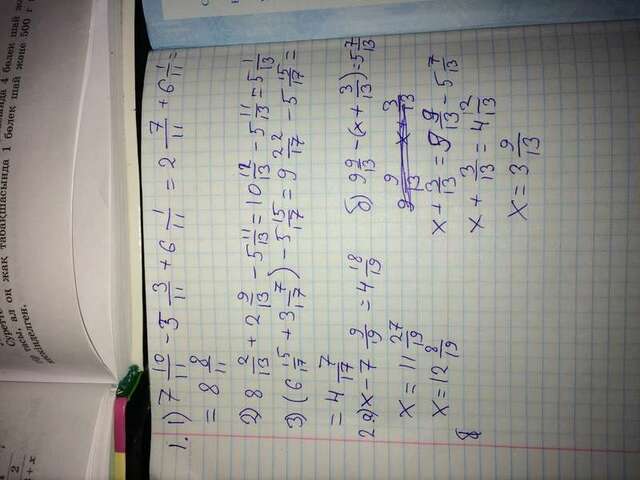 2
3 + x
Суретте
4 бөлек шай
тасы, ал оң жақ табақшасында 1 бөлек шай және 500 г
кескінделген.
1. 1) 7 10/11 - 5 3/11 + 6 1/11 = 2 7/11 + 6 1/11 =
= 8 8/11
2) 8 2/13 + 2 9/13 - 5 11/13 = 10 12/13 - 5 11/13 = 5 1/13
3) (6 15/17 + 3 7/17) - 5 15/17 = 9 22/17 - 5 15/17 =
= 4 7/17
2 а) x - 7 9/19 = 4 18/19
x = 11 27/19
x = 12 8/19
б) 9 9/13 - (x + 3/13) = 5 7/13
9 9/13 x + 3/13
x + 3/13 = 9 9/13 - 5 7/13
x + 3/13 = 4 12/13
x = 3 9/13